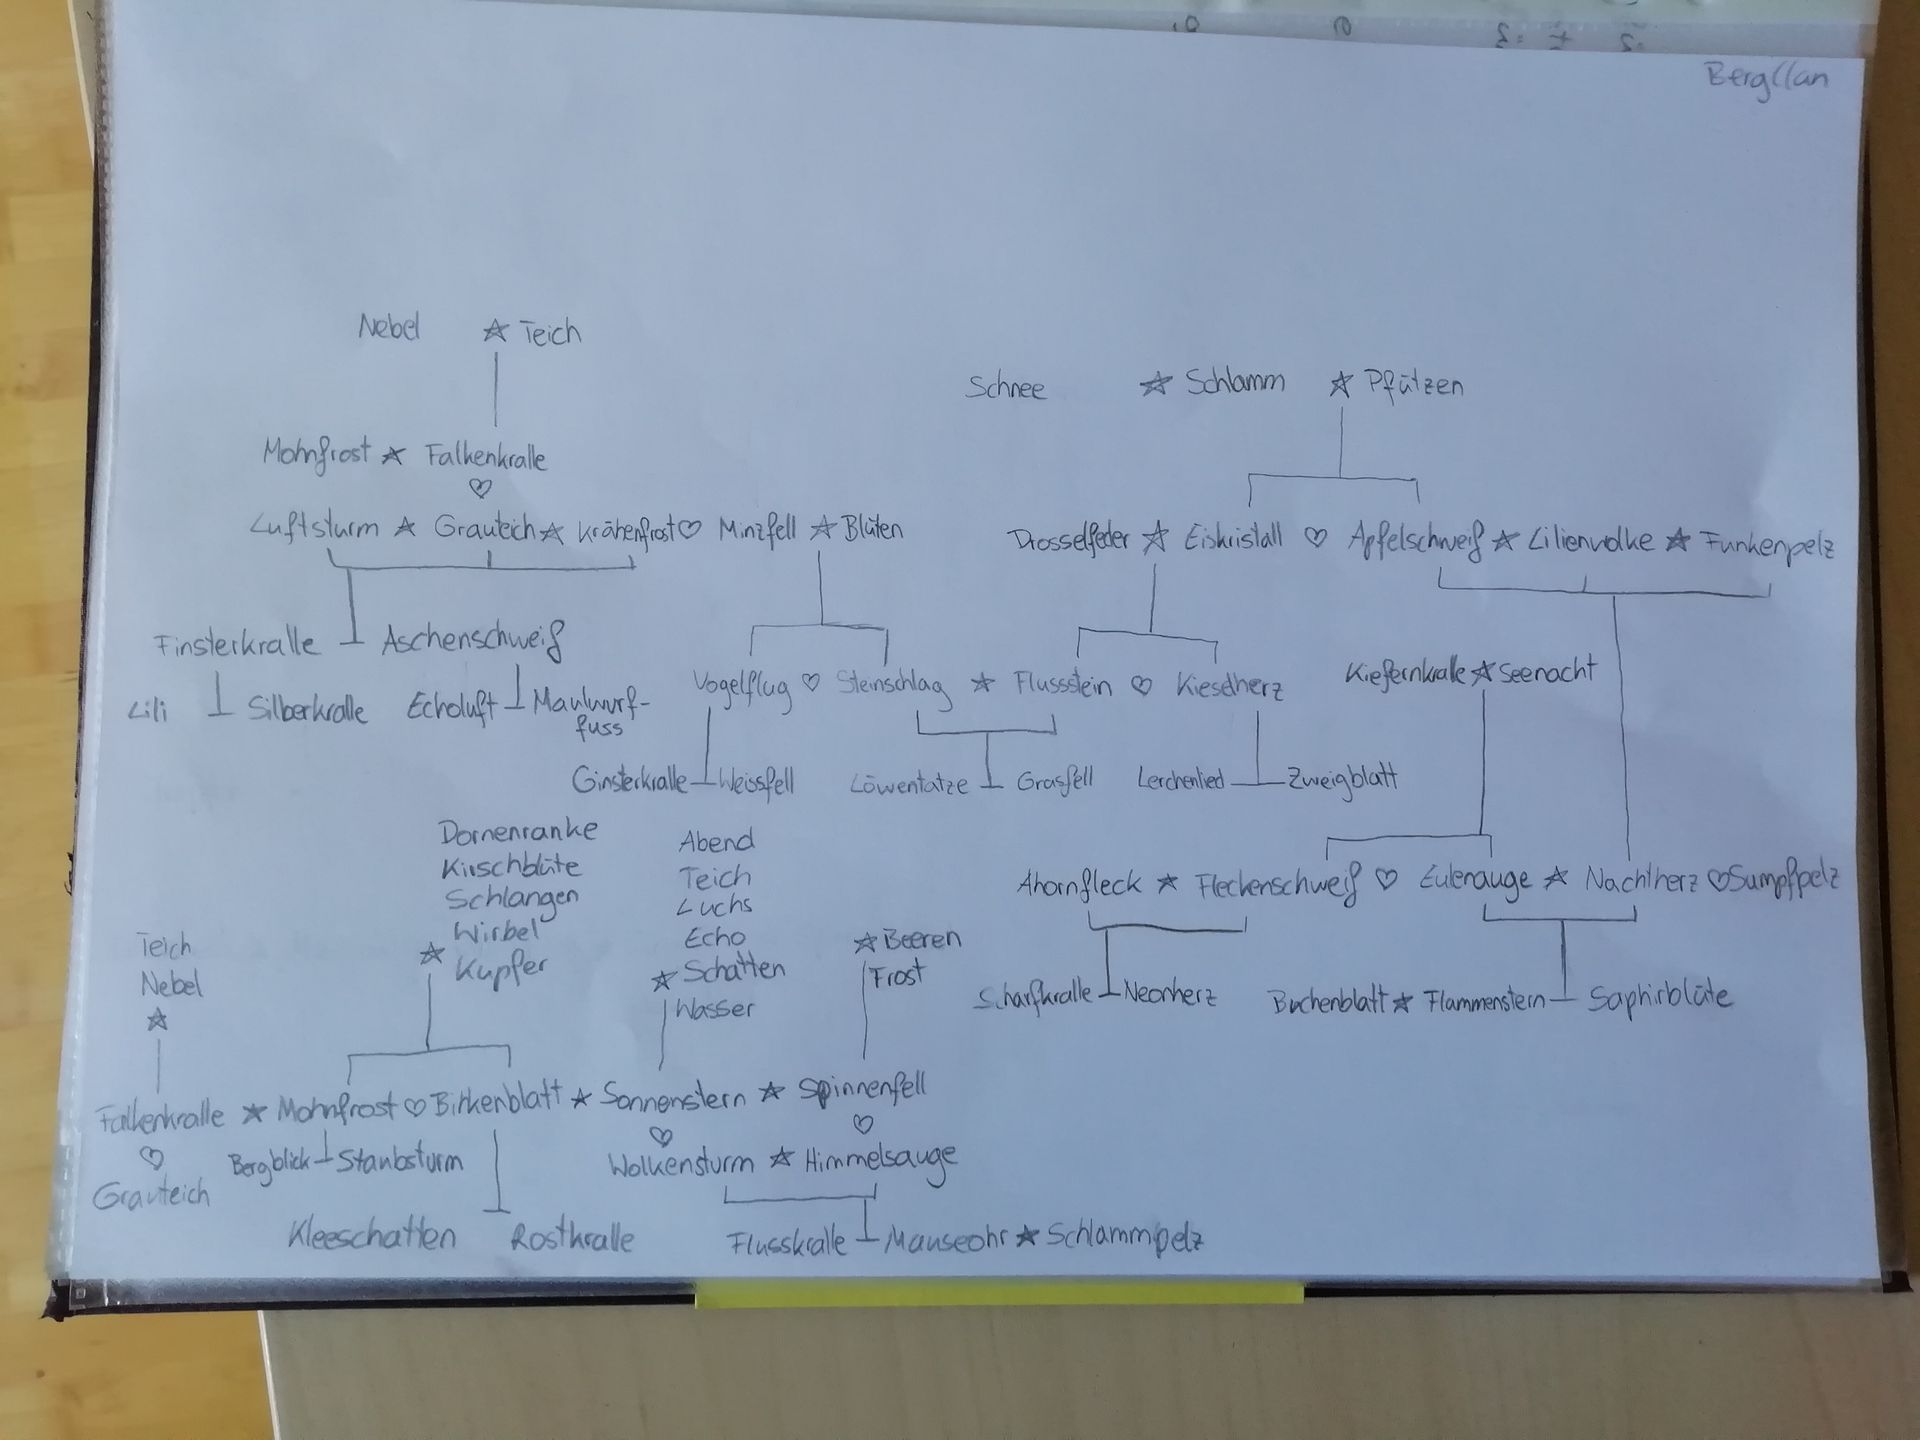 BergClan
Nebel ☆ Teich
Schnee ☆ Schlamm ☆ Pfützen
Mohnfrost ☆ Falkenkralle
♡
Luftsturm ☆ Grauteich ☆ Krähenfrost ♡ Minzfell ☆ Blüten
Drosselfeder ☆ Eiskristall ♡ Apfelschweif ☆ Lilienwolke ☆ Funkenpelz
Finsterkralle Aschenschweif
Kiefernkralle ☆ Seenacht
Vogelflug ♡ Steinschlag ☆ Flussstein ♡ Kieselherz
Lili Silberkralle Echoluft Maulwurf-
fuss
Ginsterkralle Weissfell Löwentatze Grasfell Lerchenlied Zweigblatt
Dornenranke
Kirschblüte
Schlangen
Wirbel
☆ Kupfer
Abend
Teich
Luchs
Echo
☆ Schatten
Wasser
Ahornfleck ☆ Fleckenschweif ♡ Eulenauge ☆ Nachtherz ♡ Sumpfpelz
Teich
Nebel
☆
☆ Beeren
Frost
Scharfkralle Neonherz Buchenblatt ☆ Flammenstern Saphirblüte
Falkenkralle ☆ Mohnfrost ♡ Birkenblatt ☆ Sonnenstern ☆ Spinnenfell
♡ Bergblick Staubsturm ♡ ♡
Grauteich Wolkensturm ☆ Himmelsauge
Kleeschatten Rostkralle Flusskralle Mauseohr ☆ Schlammpelz